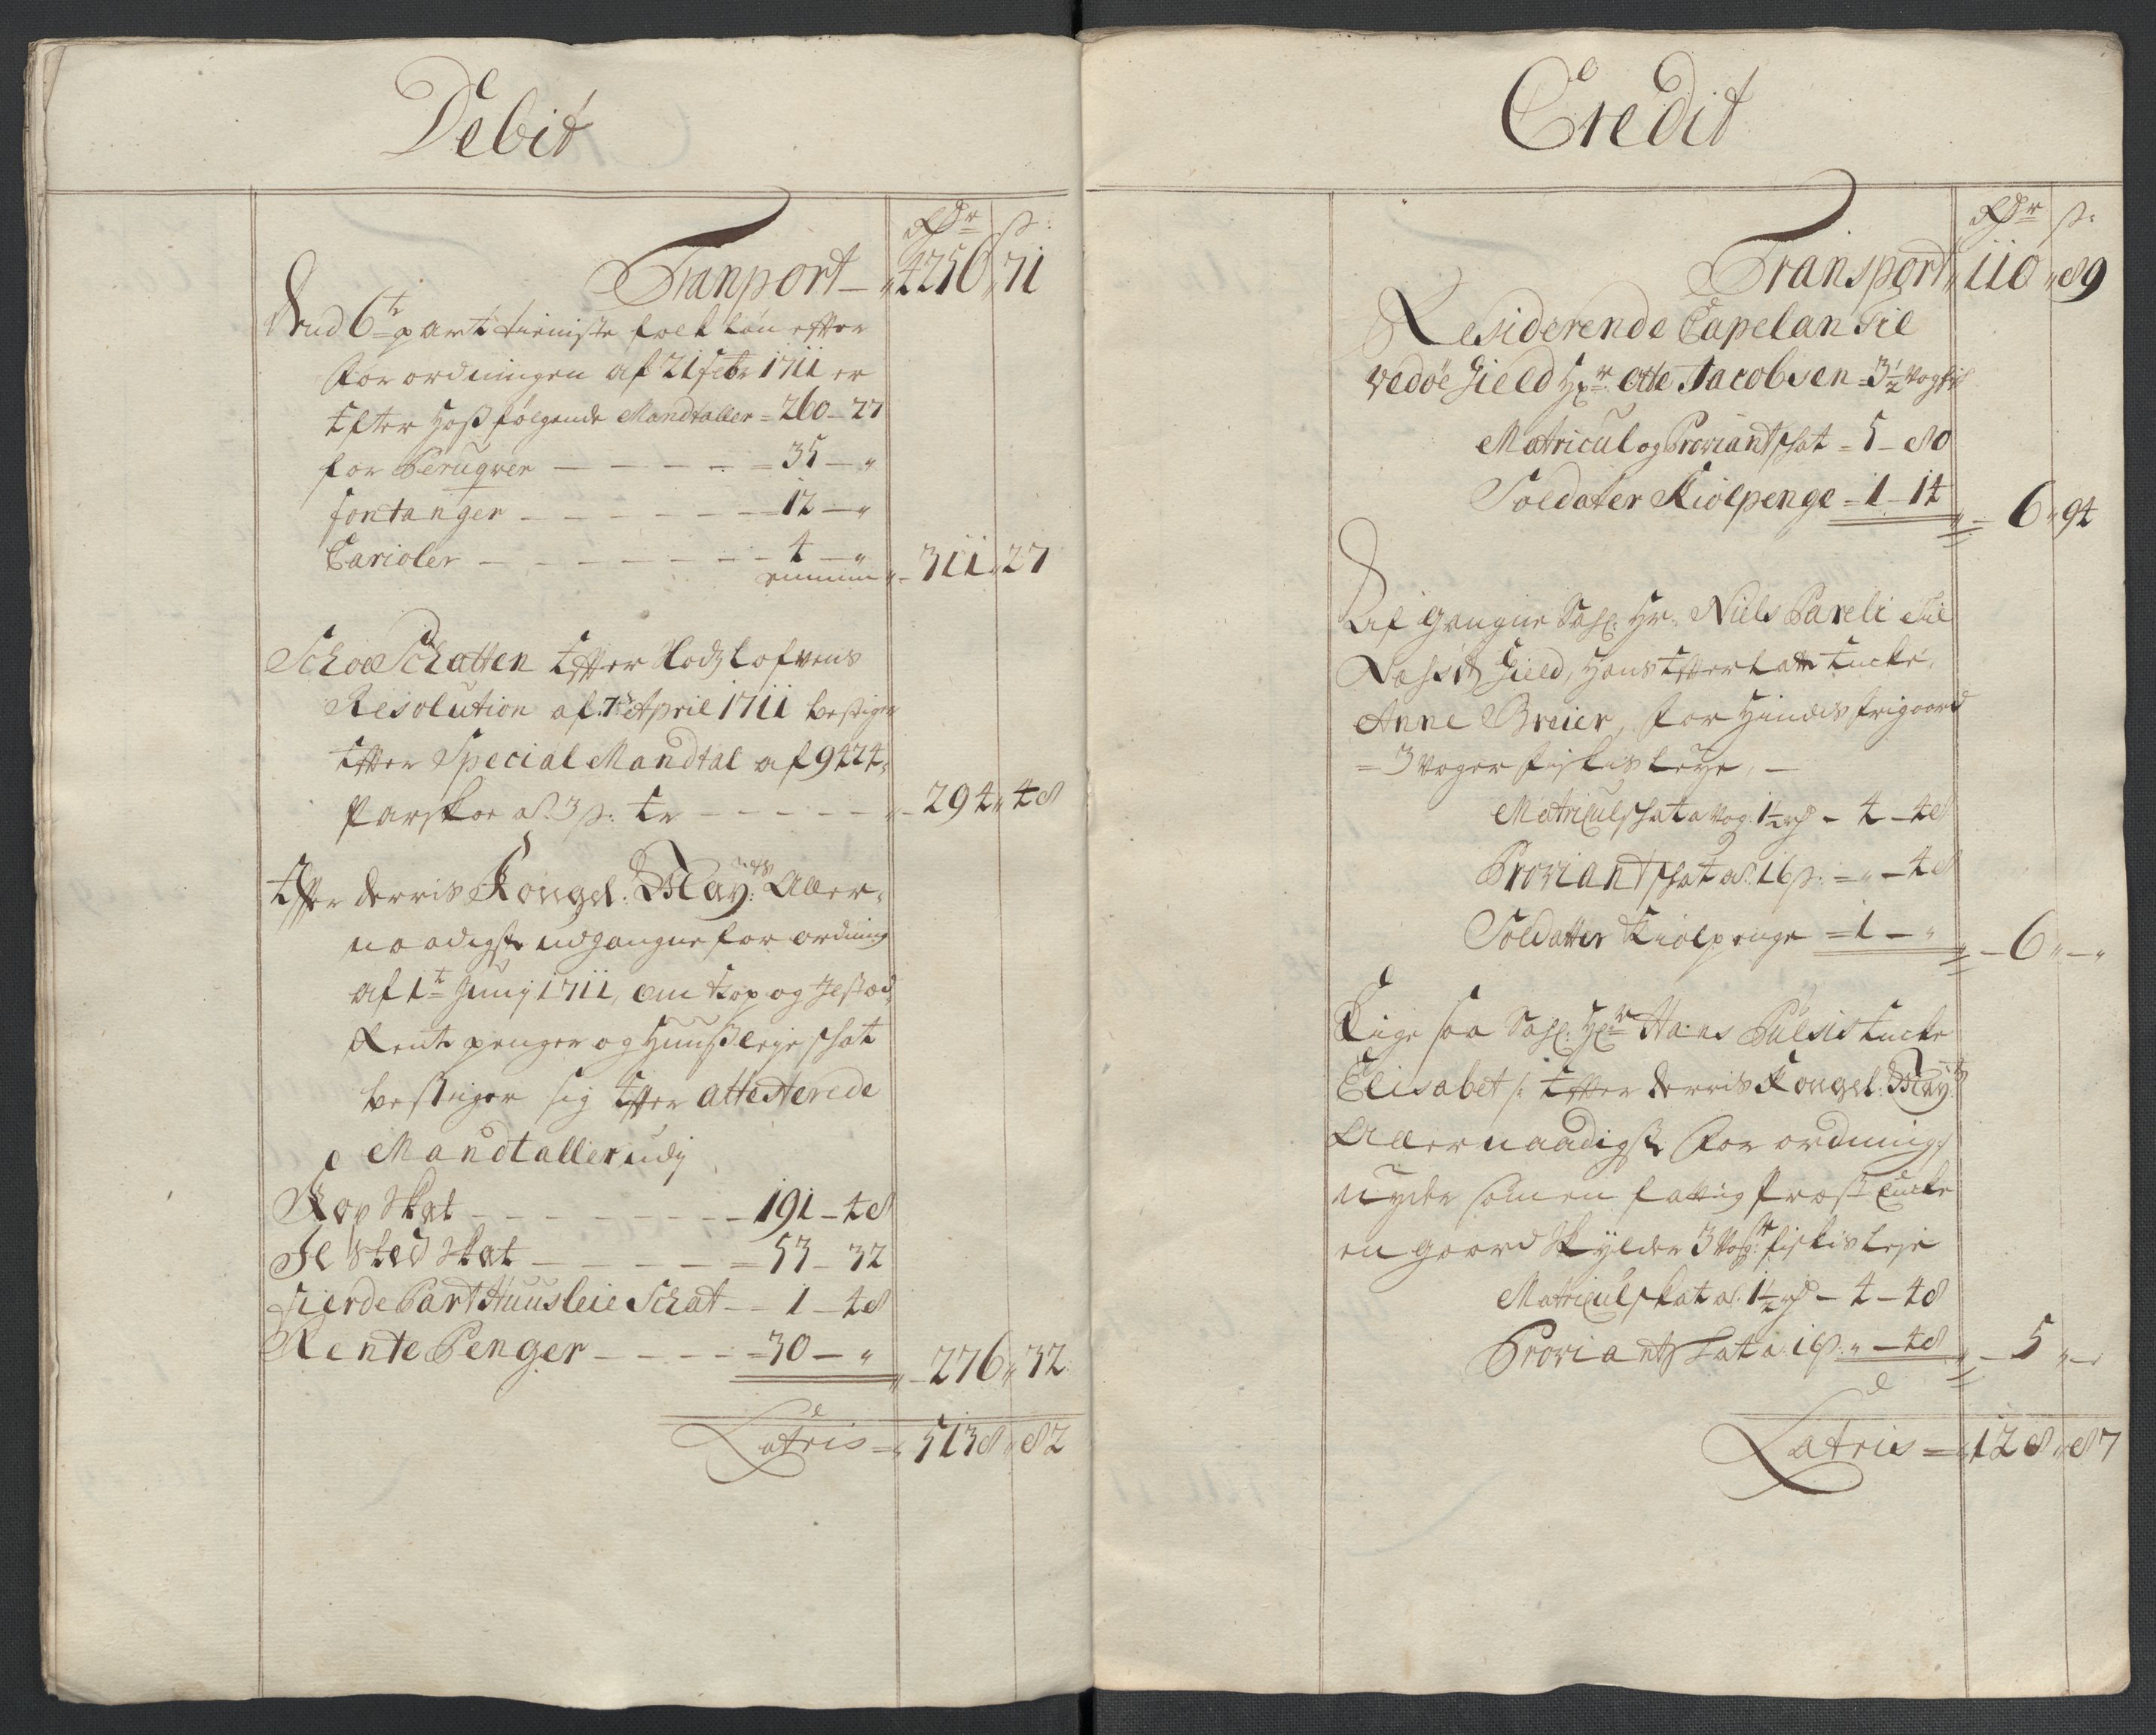 Debit
Rdr ß:
Tranport – 4256 71
6te part tieniste folk løn efter
forordningen af 21 febr 1711 er
Efter hosfølgende Mandtaller = 260 – 27
for Peruqver – – – – – = 35 – „
fontanger – – – – – – – 12 – „
Carioler – – – – – – – 4 – „
311 „ 27
Schoe Schatten Efter
Resolution af 7de April 1711 bestiger
Efter Special Mandtal af 9424
Par skoe a 3 ß: Er – – – – – 294 „ 48
Efter Derris Kongel: May:ts Aller-
naadigste udgangne forordning
af 1te Junij 1711, om Kop og Ilsted,
Rente penger og Huusleye skat
bestiger sig Efter attesterede
Mandtaller udj
Kop Skat – – – – – – – 191 – 48
Ilsted Skat – – – – – = 53 – 32
fierde Part Huusleie Schat – – 1 – 48
Rente Penger – – – – = 30 – „
– 276 „ 32
Latris = 5138 „ 82
Credit
Rdr ß:
Transport 110 „ 89
Residerende Capelan til
Vedøe Gield Hr Otte Jacobsen = 3½ Vog
Matricul og Proviant skat = 5 – 80
Soldater Kiolpenge – 1 – 14
6 „ 94
Afgangne Sahl: Hr: Niels Pareli til
Gield, Hans Efterlatte Encke,
Anne Breier, for Hindes frigaard
= 3 Voger fiskes Leye, –
Matricul skat a Vog: 1½ rd – 4 – 48
Proviant skat a 16 ß: = „ – 48
Soldatter Kiolpenge = 1 – „
– 6 „ – „
Lige saa Sahl: Hr Hans Pulsis Encke
Elisabet /: Efter Derris Kongel: May:ts
Allernaadigste forordning:/
nyder som en fattig Præste Encke
en gaard skylder 3 Vog:r fiskes Leje
Matricul skat a 1½ rd – 4 – 48
Proviant skat a 16 ß: „ – 48
– 5 „ –
Latris = 128 „ 87